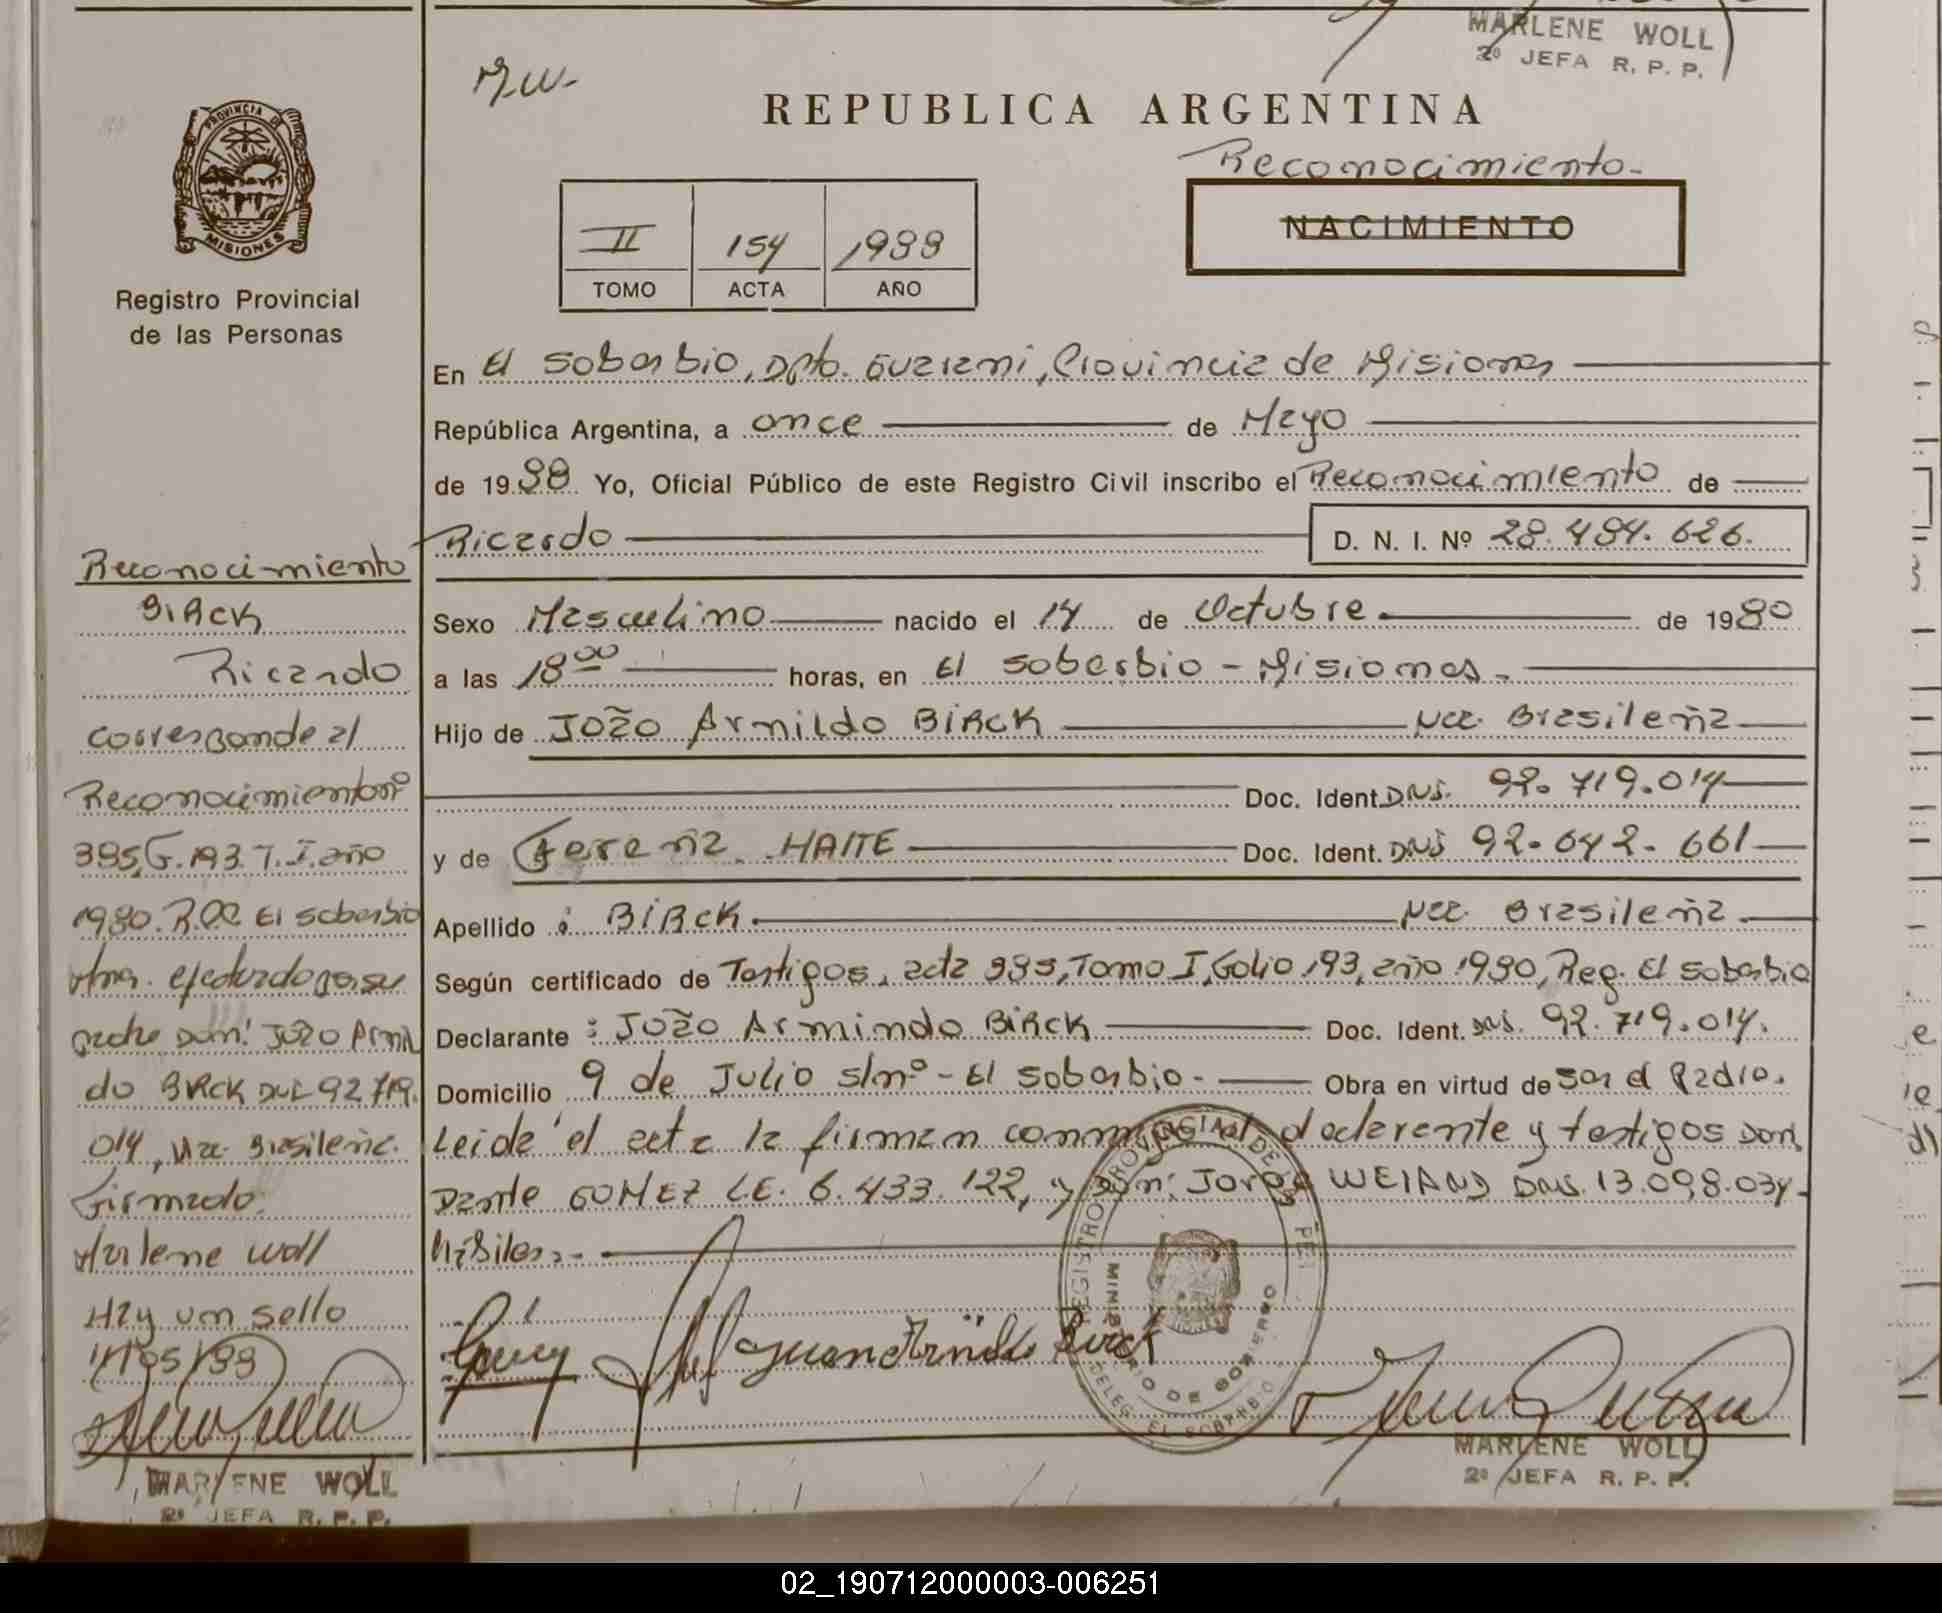 MARLENE WOLL
2º JEFA R. P. P.
M.W-
PROVINCIA DE
MISIONES
Registro Provincial
de las Personas
REPUBLICA ARGENTINA
Reconocimiento-
NACIMIENTO
II 154 1988
TOMO ACTA AÑO
En El Soberbio, Dpto. Guarani, Provincia de Misiones
República Argentina, a once de Mayo
de 1988 Yo, Oficial Público de este Registro Civil inscribo el Reconocimiento de
Ricardo D. N. I. Nº 28.484.626.
Sexo Masculino nacido el 14 de Octubre de 1980
a las 18 00 horas, en El Soberbio - Misiones.
Hijo de João Armildo BIRCK Nac. Brasileña
Doc. Ident. DNI. 92.719.014
y de HAITE Doc. Ident. DNI 92.642.661
Apellido : BIRCK. Nac. Brasileña.
Según certificado de Testigos, acta 385, Tomo I, Folio 193, año 1980, Reg. El Soberbio
Declarante : João Armindo BIRCK Doc. Ident. DNI. 92.719.014.
Domicilio 9 de Julio s/nº - El Soberbio. Obra en virtud de ser el Padre.
Leida el acta la firman conmigo el declarante y testigos Don:
Dante GOMEZ L.E. 6.433.122, y Don: Jorge WEIAND DNI. 13.098.034-
Hábiles.-
Reconocimiento
BIRCK
Ricardo
corresponde al
Reconocimiento nº
385, F. 193. T. I. año
1980. R.P.P. El Soberbio
Mnes. efectuado por su
padre Don: João Armil
do BIRCK DNI 92719.
014, Nac. Brasileña.
Firmado:
Marlene Woll
Hay un sello
11/05/88
MARLENE WOLL
2º JEFA R. P. P.
Juan Arnildo Birck
REGISTRO PROVINCIAL DE LAS PER
MINISTERIO DE GOBIERNO
DELEG. EL SOBERBIO
MARLENE WOLL
2º JEFA R. P. P.
02_190712000003-006251